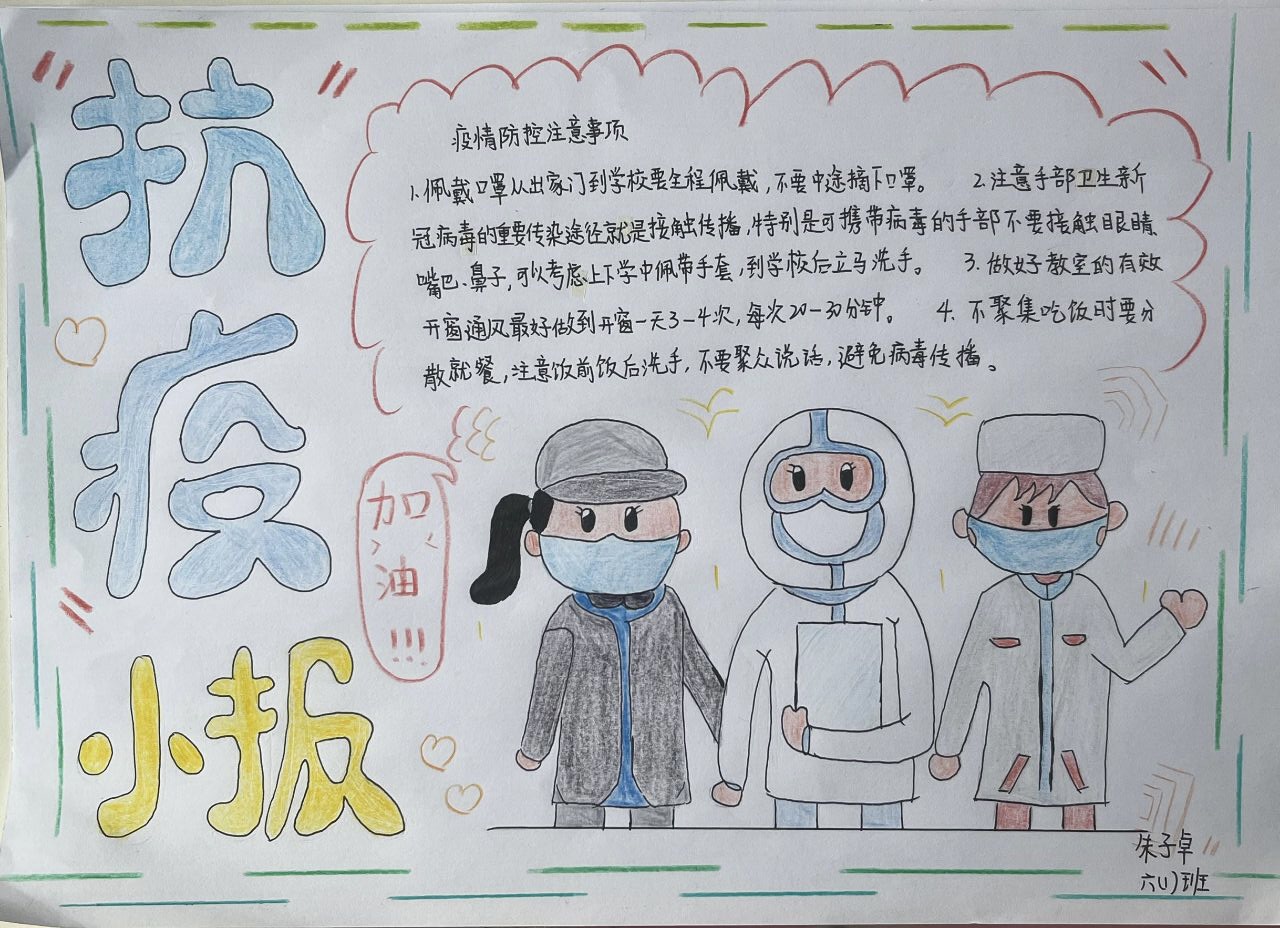 抗
疫
小报
疫情防控注意事项
1.佩戴口罩从出家门到学校要全程佩戴,不要中途摘下口罩。 2.注意手部卫生新
冠病毒的重要传染途径就是接触传播,特别是可携带病毒的手部不要接触眼睛
嘴巴、鼻子,可以考虑上下学中佩带手套,到学校后立马洗手。 3.做好教室的有效
开窗通风最好做到开窗一天3-4次,每次20-30分钟。 4.不聚集吃饭时要分
散就餐,注意饭前饭后洗手,不要聚众说话,避免病毒传播。
加
油
!!!
朱子卓
六(1)班